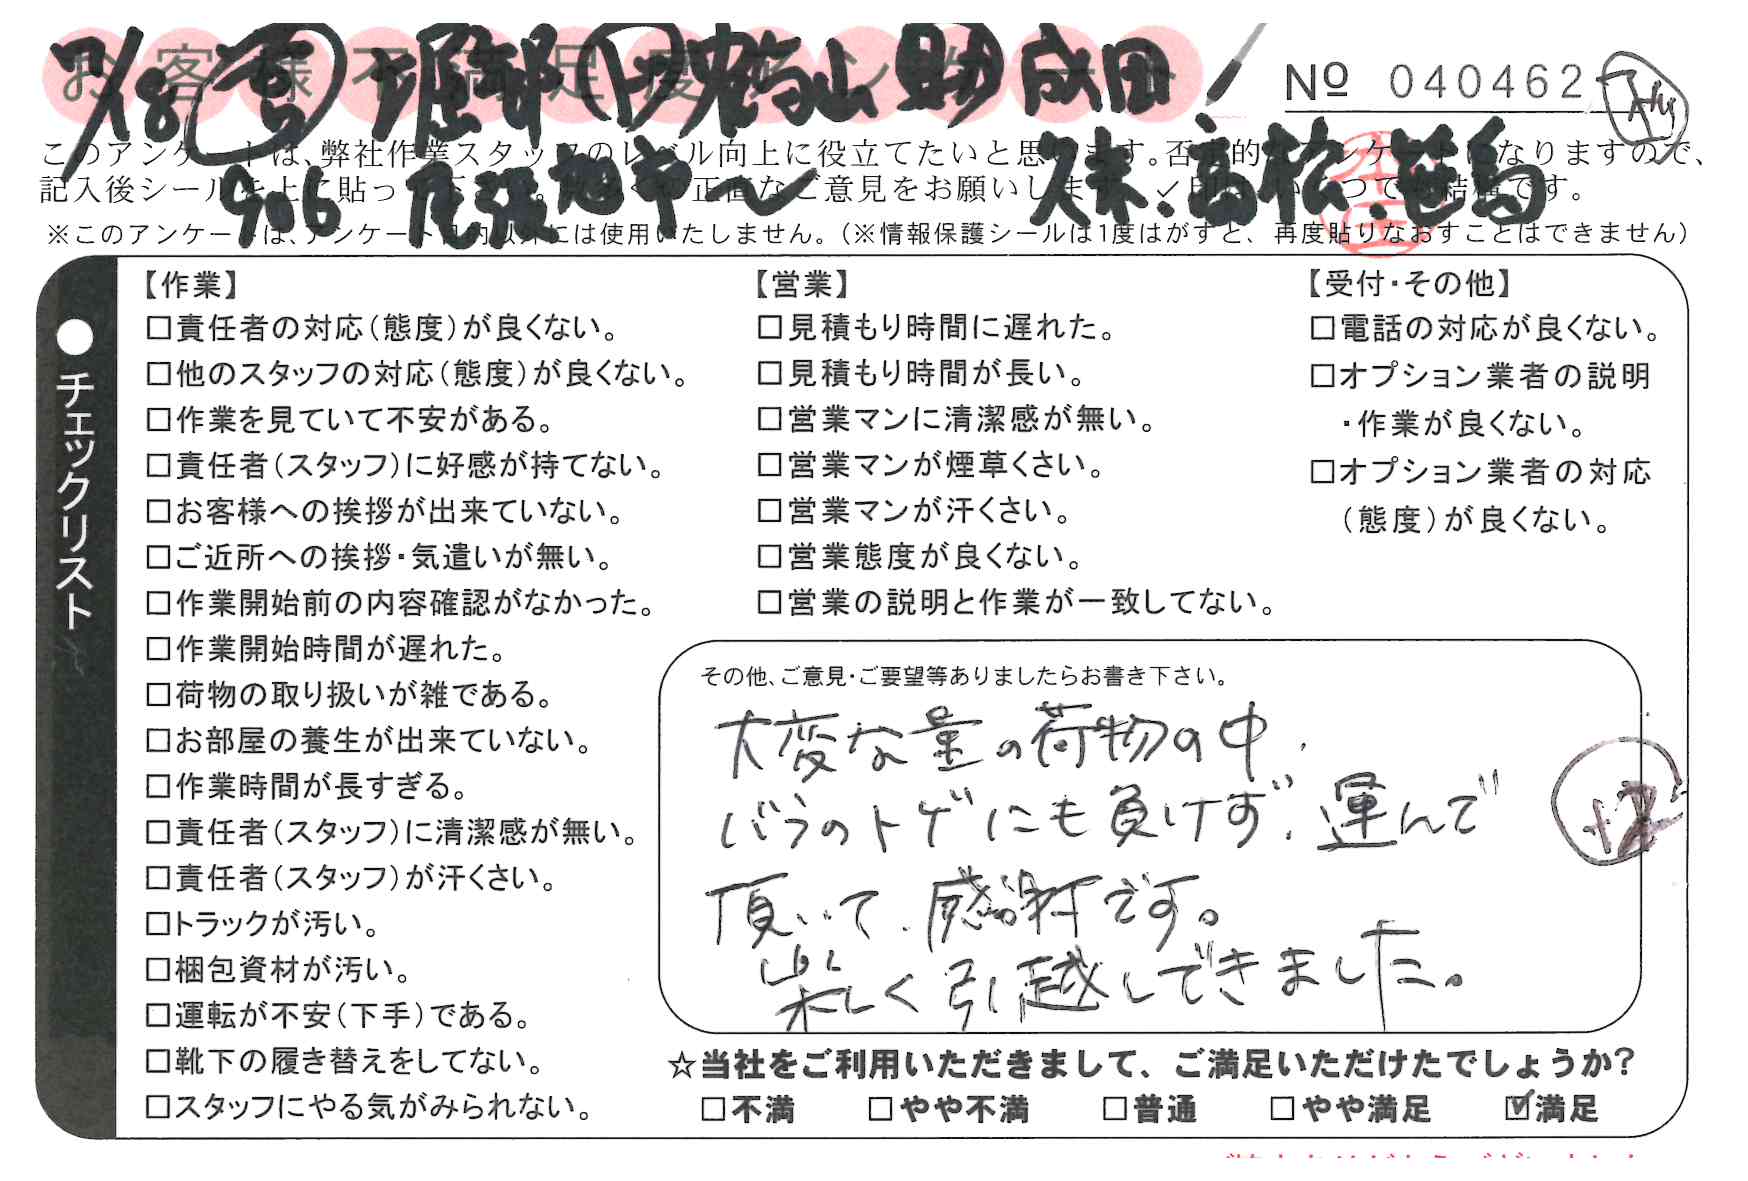 お客様不満足度アンケート
7/18 堀部 鶴山 助 成田
№ 040462
このアンケートは、弊社作業スタッフのレベル向上に役立てたいと思います。否定的なアンケートになりますので、
記入後シールを上に貼って下さい。正直なご意見をお願いします。✓印はいくつでも結構です。
906 尾張旭市〜 久末.高松.笹島
※このアンケートは、アンケート目的以外には使用いたしません。(※情報保護シールは1度はがすと、再度貼りなおすことはできません)
●チェックリスト
【作業】
□責任者の対応(態度)が良くない。
□他のスタッフの対応(態度)が良くない。
□作業を見ていて不安がある。
□責任者(スタッフ)に好感が持てない。
□お客様への挨拶が出来ていない。
□ご近所への挨拶・気遣いが無い。
□作業開始前の内容確認がなかった。
□作業開始時間が遅れた。
□荷物の取り扱いが雑である。
□お部屋の養生が出来ていない。
□作業時間が長すぎる。
□責任者(スタッフ)に清潔感が無い。
□責任者(スタッフ)が汗くさい。
□トラックが汚い。
□梱包資材が汚い。
□運転が不安(下手)である。
□靴下の履き替えをしてない。
□スタッフにやる気がみられない。
【営業】
□見積もり時間に遅れた。
□見積もり時間が長い。
□営業マンに清潔感が無い。
□営業マンが煙草くさい。
□営業マンが汗くさい。
□営業態度が良くない。
□営業の説明と作業が一致してない。
【受付・その他】
□電話の対応が良くない。
□オプション業者の説明
・作業が良くない。
□オプション業者の対応
(態度)が良くない。
その他、ご意見・ご要望等ありましたらお書き下さい。
大変な量の荷物の中、
バラのトゲにも負けず、運んで
頂いて、感謝です。
楽しく引越しできました。
+2
☆当社をご利用いただきまして、ご満足いただけたでしょうか?
□不満 □やや不満 □普通 □やや満足 ☑満足